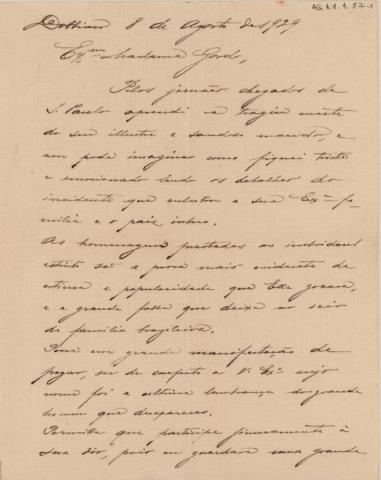 AG.1.1.1.87-1
8 de Agosto de 1929
Exma Madame Gordo,
Pelos jornaes chegados de
S. Paulo aprendi a tragica morte
do seu illustre e saudoso marido, e
nem pode imaginar como fiquei triste
e emocionado lendo os detalhes do
incidente que enlutou a sua Exma fa-
milia e o paiz inteiro.
As homenagens prestadas ao inolvidavel
extincto são a prova mais evidente da
estima e popularidade que Elle gosava,
e a grande falta que deixa no seio
da familia brazileira.
grande manifestação de
pezar, de conforto a V. Exa cujo
nome foi a ultima lembrança do grande
homem que desapareceu.
Permitta que participe sinceramente à
sua dôr, pois eu guardava uma grande